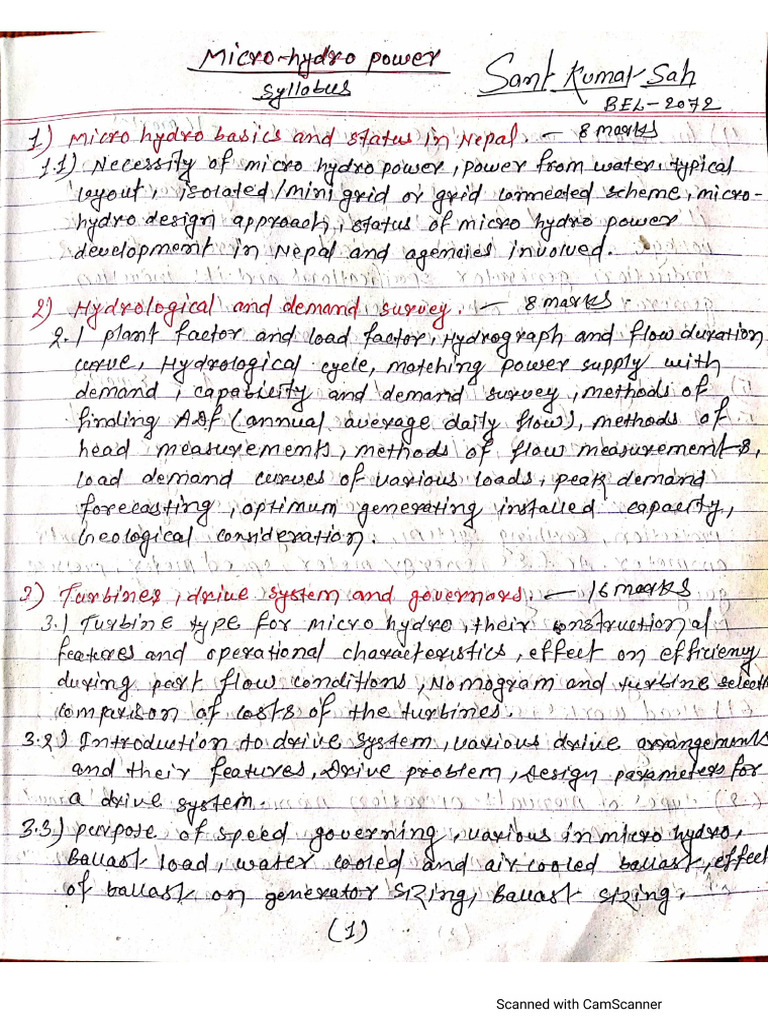 Micro-hydro power
Syllabus
Sant Kumar Sah
BEL-2072
1) Micro hydro basics and status in Nepal. - 8 marks
1.1) Necessity of micro hydro power, power from water, typical
layout, isolated/mini grid or grid connected scheme, micro-
hydro design approach, status of micro hydro power
development in Nepal and agencies involved.
2) Hydrological and demand survey. - 8 marks
2.1 plant factor and load factor, Hydrograph and flow duration
curve, Hydrological cycle, matching power supply with
demand, capability and demand survey, methods of
finding ADF (annual average daily flow), methods of
head measurements, methods of flow measurements,
load demand curves of various loads, peak demand
forecasting, optimum generating installed capacity,
Geological consideration.
3) Turbines, drive system and governors. - 16 marks
3.1 Turbine type for micro hydro, their constructional
features and operational characteristics, effect on efficiency
during part flow conditions, Nomogram and turbine selecti
comparison of costs of the turbines.
3.2) Introduction to drive system, various drive arrangements
and their features, Drive problem, Design parameters for
a drive system.
3.3) purpose of speed governing, various in micro hydro,
Ballast load, water cooled and air cooled ballast, effect
of ballast on generator sizing, Ballast sizing.
(1)
Scanned with CamScanner